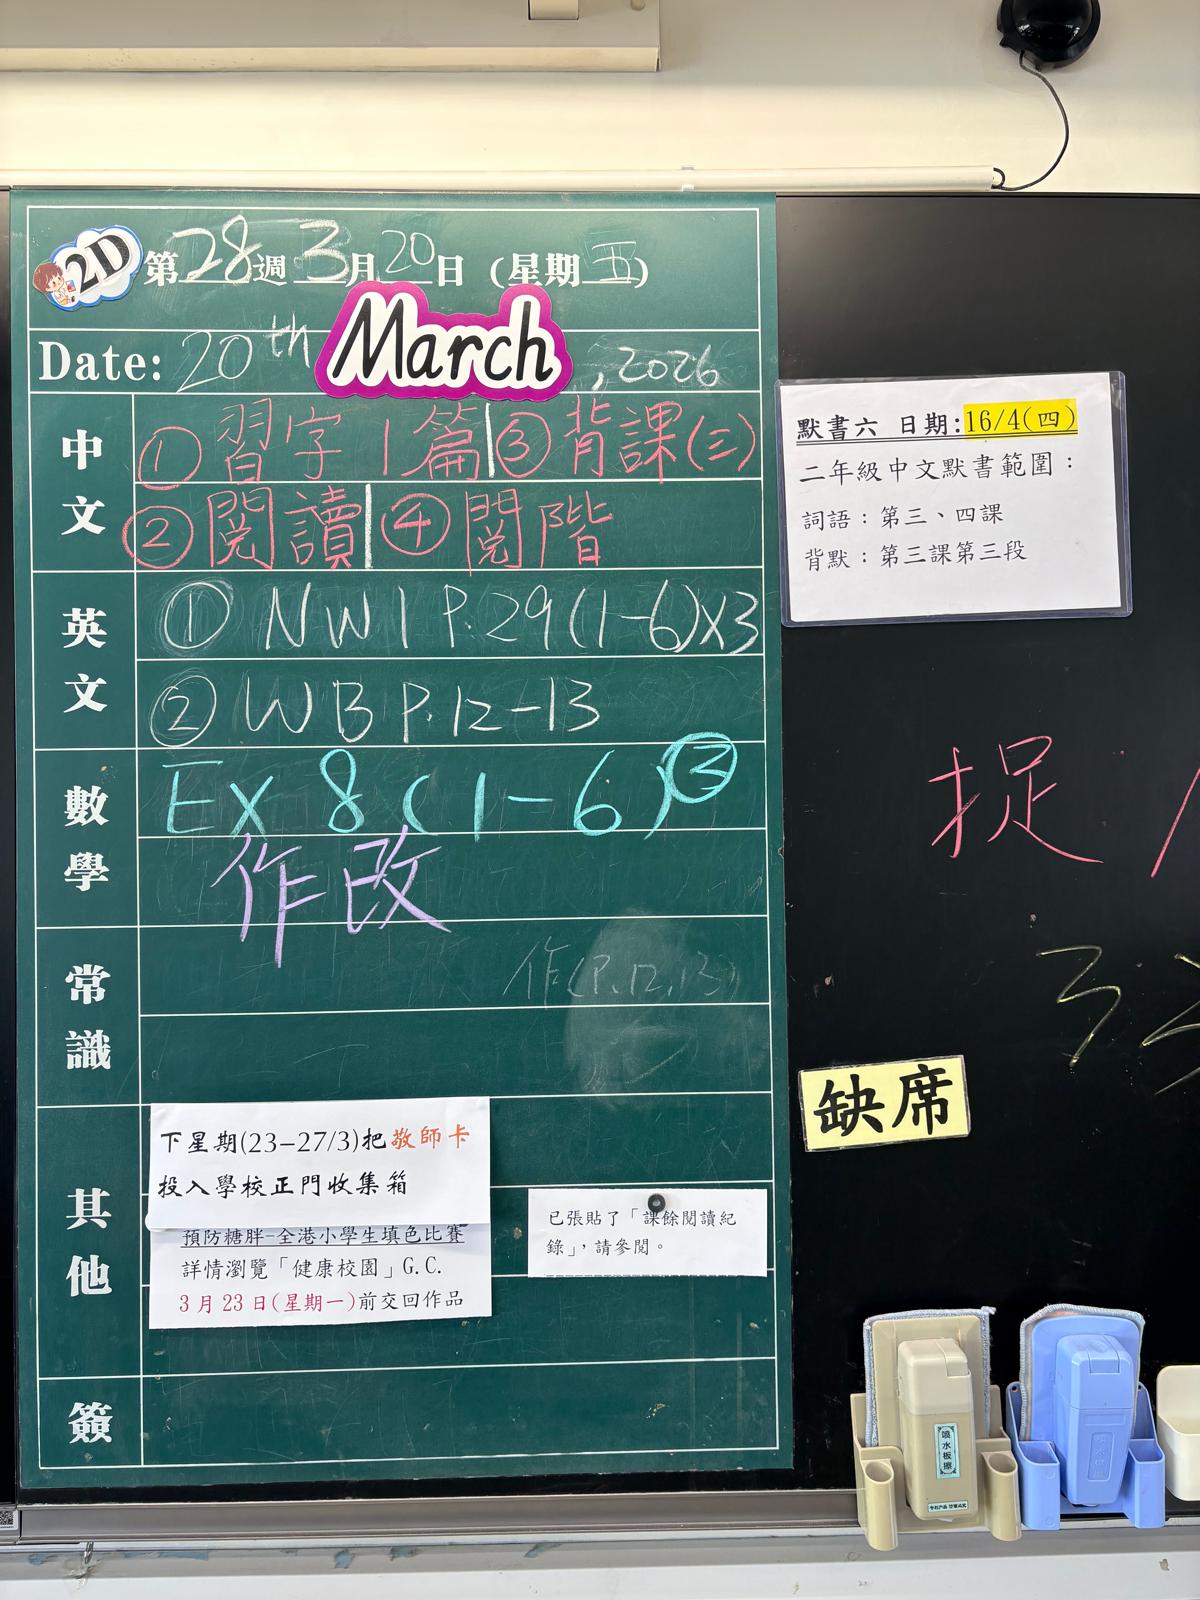 2D 第28週 3月20日 (星期五)
Date: 20th March, 2026
中文
① 習字1篇 ③背課(三)
② 閱讀 ④閱階
英文
① NW1 P.29(1-6)x3
② WB P.12-13
數學
Ex 8(1-6)③
作改
常識
作(P.12,13)
其他
下星期(23-27/3)把敬師卡
投入學校正門收集箱
預防糖胖-全港小學生填色比賽
詳情瀏覽「健康校園」G.C.
3月23日(星期一)前交回作品
已張貼了「課餘閱讀紀
錄」,請參閱。
簽
默書六 日期:16/4(四)
二年級中文默書範圍:
詞語:第三、四課
背默:第三課第三段
捉
缺席
噴水板擦